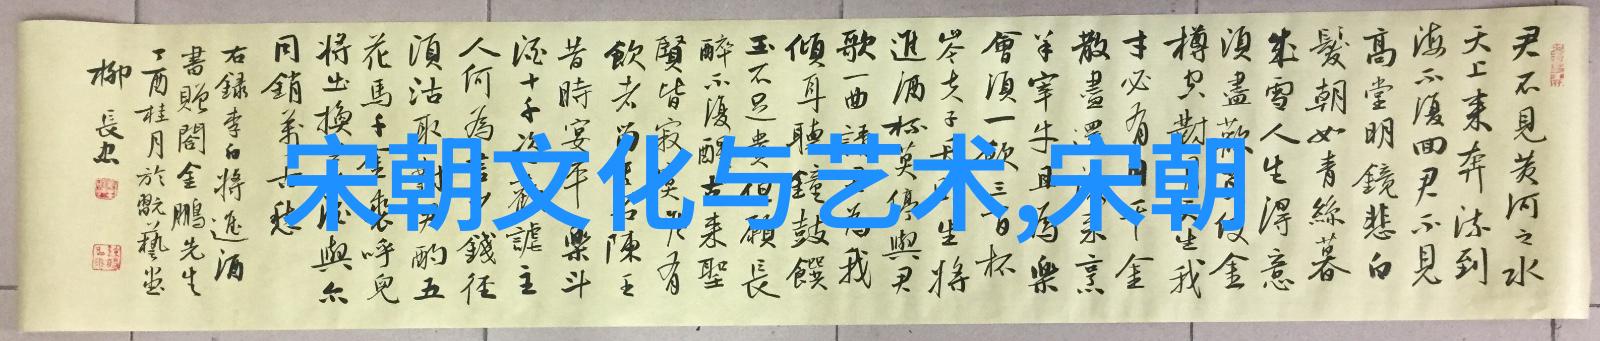 君不見黃河之水
天上来奔流到
海不復回君不見
高堂明鏡悲白
髮朝如青絲暮
成雪人生得意
須盡歡
樽空對月天生我
才必有用千金
散盡還復來烹
羊宰牛且為樂
會須一飲三百杯
岑夫子丹丘生將
進酒杯莫停與君
歌一曲請君為我
傾耳聽鐘鼓饌
玉不足貴但願長
醉不復醒古来聖
賢皆寂寞惟有
飲者留其名陳王
昔時宴平樂斗
酒十千恣歡謔主
人何為言少錢径
須沽取對君酌五
花馬千金裘呼兒
將出換美酒與尔
同銷萬古愁
右録李白將進酒
書贈閣金鵬先生
丁酉桂月於
柳長忠
宋朝文化与艺术,宋朝